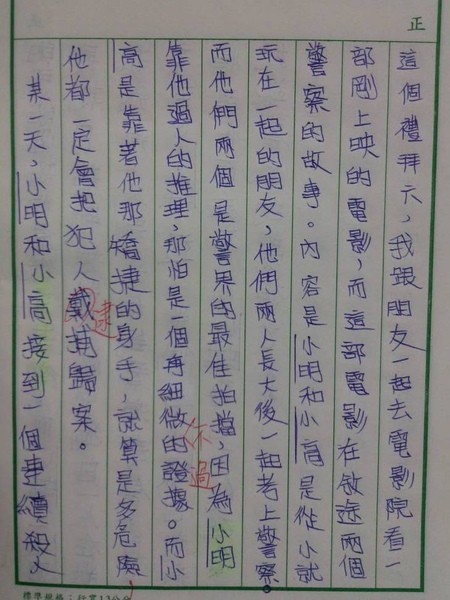 正
這個禮拜六,我跟朋友一起去電影院看一
部剛上映的電影,而這部電影在敘途兩個
警察的故事。內容是小明和小高是從小就
玩在一起的朋友,他們兩人長大後一起考上警察。
而他們兩個是警界的最佳拍擋,因為小明
靠他過人的推理,那怕是一個再細微的證據。而小
不過
高是靠著他那矯捷的身手,就算是多危險,
他都一定會把犯人戴捕歸案。
逮
某一天,小明和小高接到一個連續殺人
標準規格:行寬